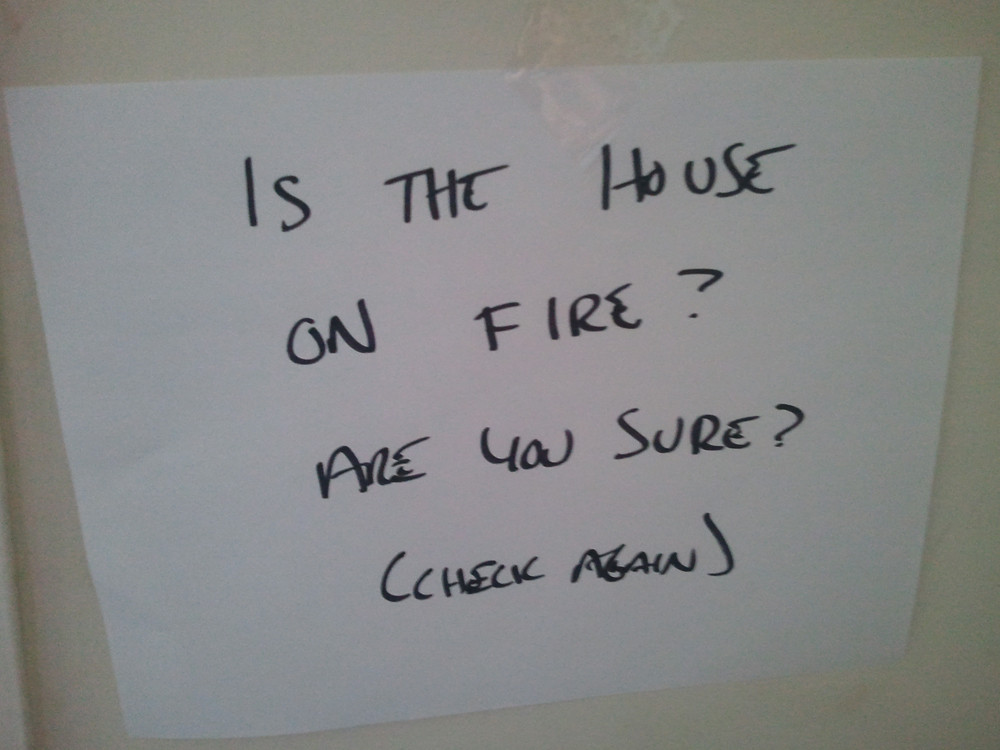 IS THE HOUSE
ON FIRE?
ARE YOU SURE?
(CHECK AGAIN)